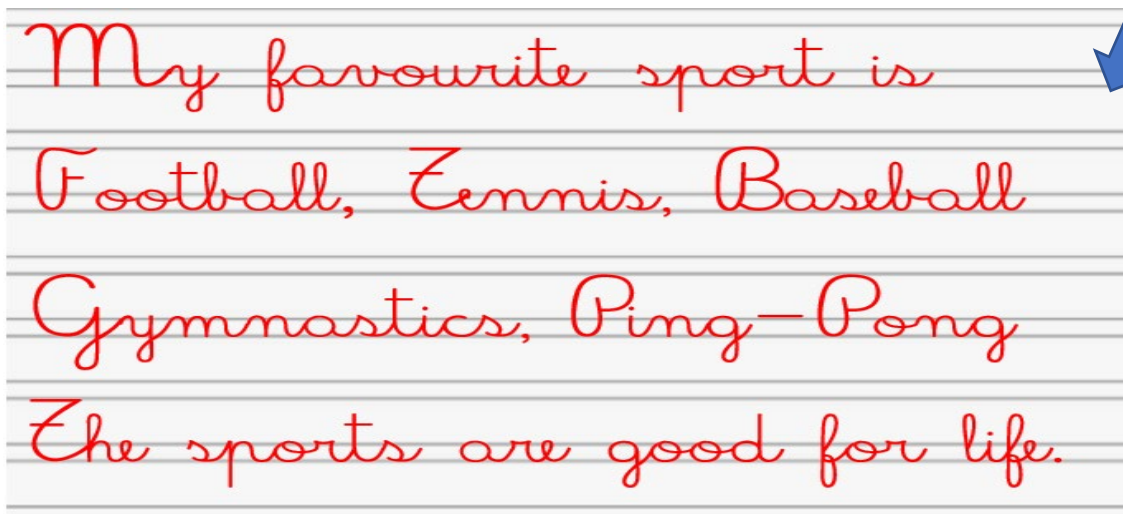 My favourite sport is
Football, Tennis, Baseball
Gymnastics, Ping-Pong
The sports are good for life.